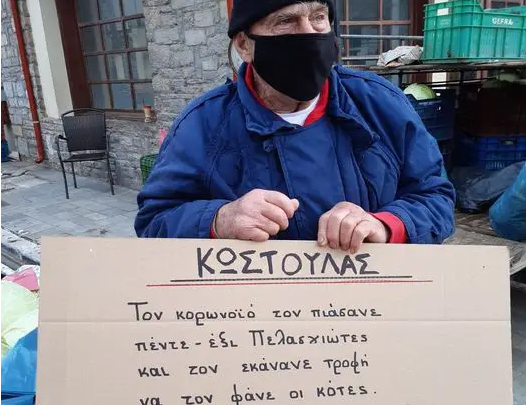 GEFRA
ΚΩΣΤΟΥΛΑΣ
Τον κορωνοϊό τον πιάσανε
πέντε - έξι Πελασγιώτες
και τον εκάνανε τροφή
να τον φάνε οι κότες.